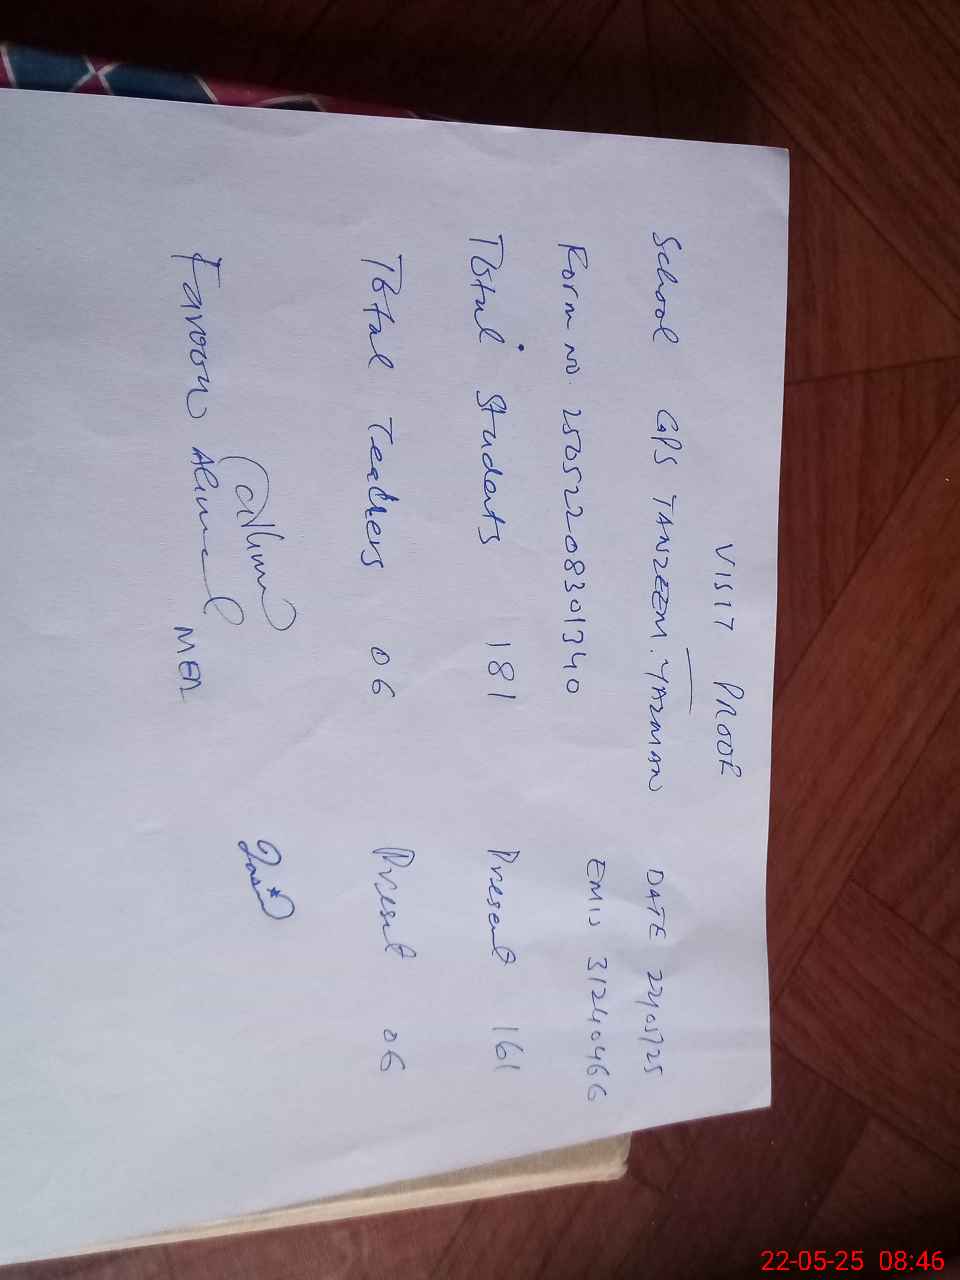 VISIT PROOF
School GPS TANZEEM. YAZMAN DATE 22/05/25
Form no. 25052208301340 EMIS 31240466
Total Students 181 Present 161
Total Teachers 06 Present 06
Farooq Ahmed MEA
22-05-25 08:46